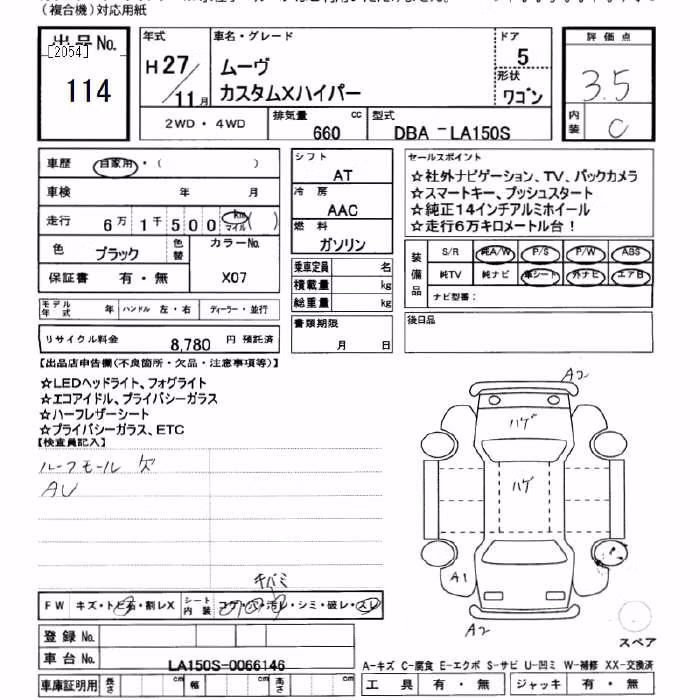 （複合機）対応用紙
出品No.
[2054]
114
年式
H27/11月
車名・グレード
ムーヴ
カスタムXハイパー
ドア
5
形状
ワゴン
評価点
3.5
内装
C
2WD・4WD
排気量
660 cc
型式
DBA-LA150S
車歴 自家用・（ ）
車検 年 月
走行 6万1千500 km マイル ( )
色 ブラック 色替
カラーNo.
X07
保証書 有・無
モデル年式 年 ハンドル 左・右 ディーラー・並行
リサイクル料金 8,780 円 預託済
シフト
AT
冷房
AAC
燃料
ガソリン
乗車定員 名
積載量 kg
総重量 kg
書類期限
月 日
セールスポイント
☆社外ナビゲーション、TV、バックカメラ
☆スマートキー、プッシュスタート
☆純正14インチアルミホイール
☆走行6万キロメートル台！
装備品
S/R 純A/W P/S P/W ABS
純TV 純ナビ 革シート 外ナビ エアB
ナビ型番：
後日品
【出品店申告欄(不良箇所・欠品・注意事項等)】
☆LEDヘッドライト、フォグライト
☆エコアイドル、プライバシーガラス
☆ハーフレザーシート
☆プライバシーガラス、ETC
【検査員記入】
ルーフモール ズ
AU
A2
ハゲ
ハゲ
A1
A2
スペア
キバミ
FW キズ・トビ石・割レX
シート内装 コゲ・穴・汚レ・シミ・破レ・スレ
登録No.
車台No. LA150S-0066146
車庫証明用 長さ cm 幅 cm 高さ cm
A-キズ C-腐食 E-エクボ S-サビ U-凹ミ W-補修 XX-交換済
工具 有・無 ジャッキ 有・無